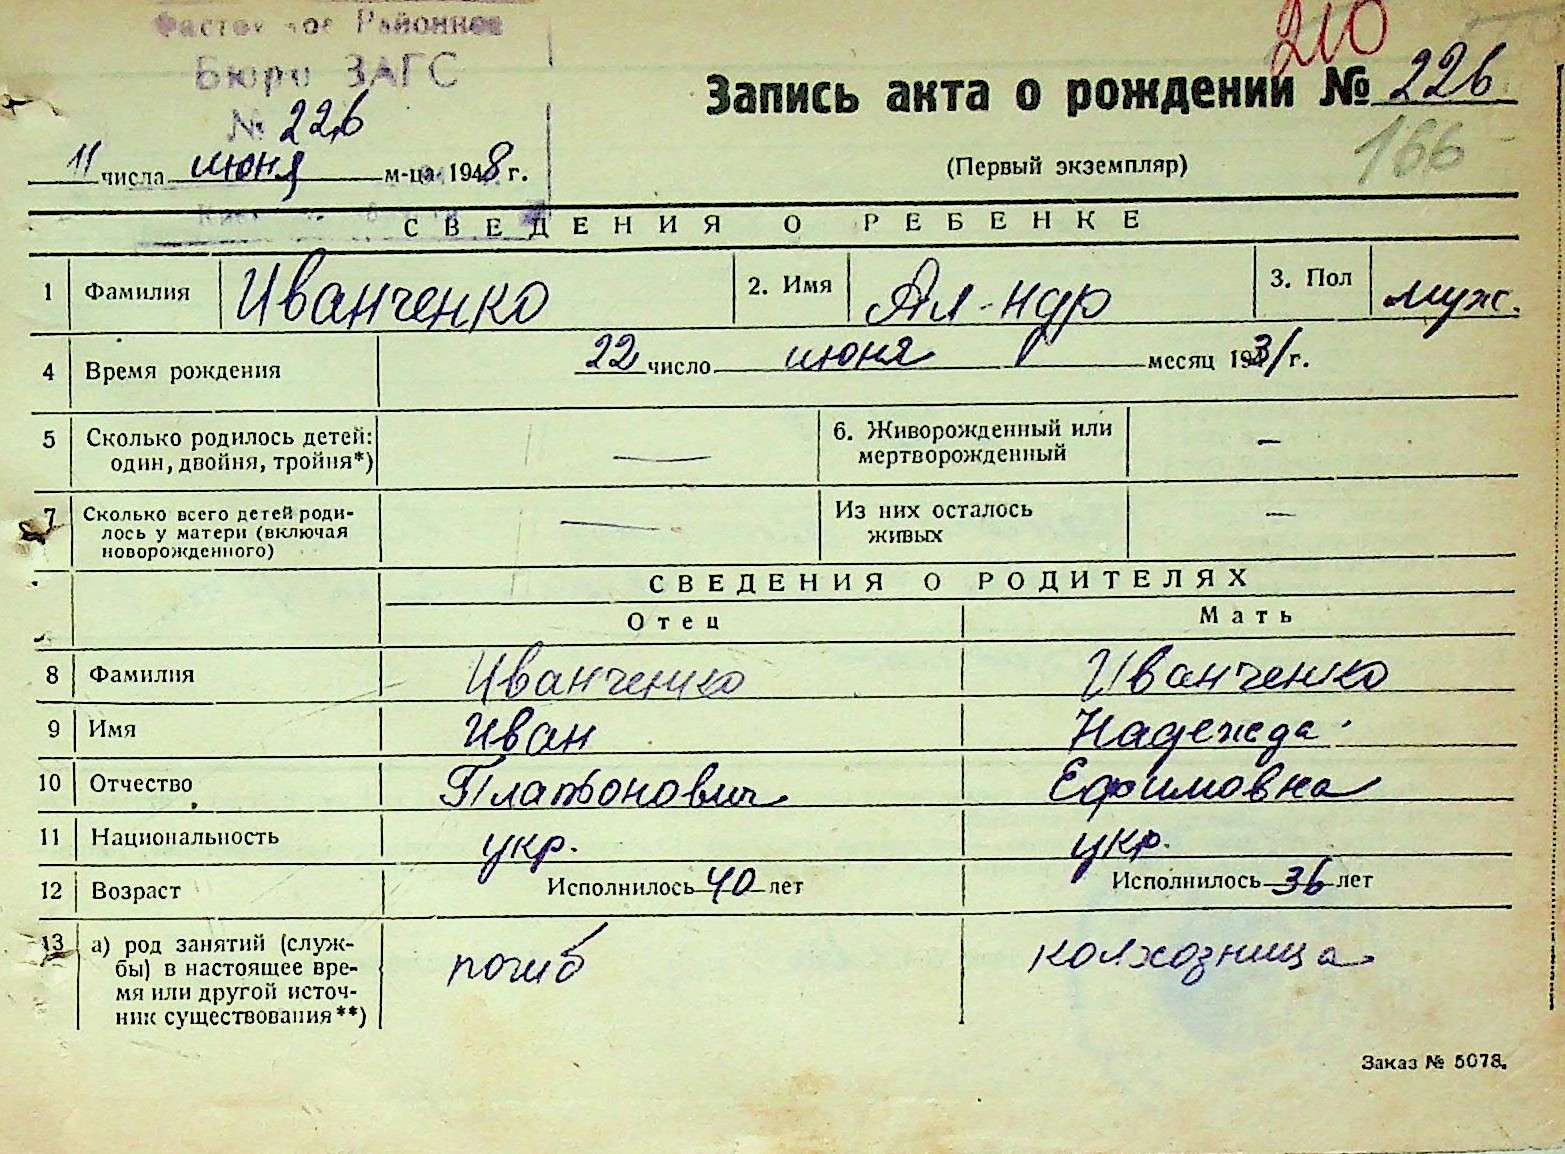 Районное
Бюро ЗАГС
№ 226
210
Запись акта о рождении № 226
166
11 числа июня м-ца 1948 г.
(Первый экземпляр)
СВЕДЕНИЯ О РЕБЕНКЕ
1 Фамилия Иванченко 2. Имя Ал-ндр 3. Пол муж.
4 Время рождения 22 число июня месяц 1931 г.
5 Сколько родилось детей: один, двойня, тройня*) — 6. Живорожденный или мертворожденный —
7 Сколько всего детей роди-
лось у матери (включая
новорожденного) — Из них осталось живых —
СВЕДЕНИЯ О РОДИТЕЛЯХ
Отец Мать
8 Фамилия Иванченко Иванченко
9 Имя Иван Надежда
10 Отчество Платонович Ефимовна
11 Национальность укр. укр.
12 Возраст Исполнилось 40 лет Исполнилось 36 лет
13 а) род занятий (служ-
бы) в настоящее вре-
мя или другой источ-
ник существования**) погиб колхозница
Заказ № 5078.